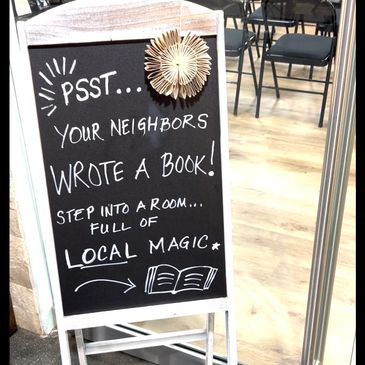 PSST...
YOUR NEIGHBORS
WROTE A BOOK!
STEP INTO A ROOM...
FULL OF
LOCAL MAGIC